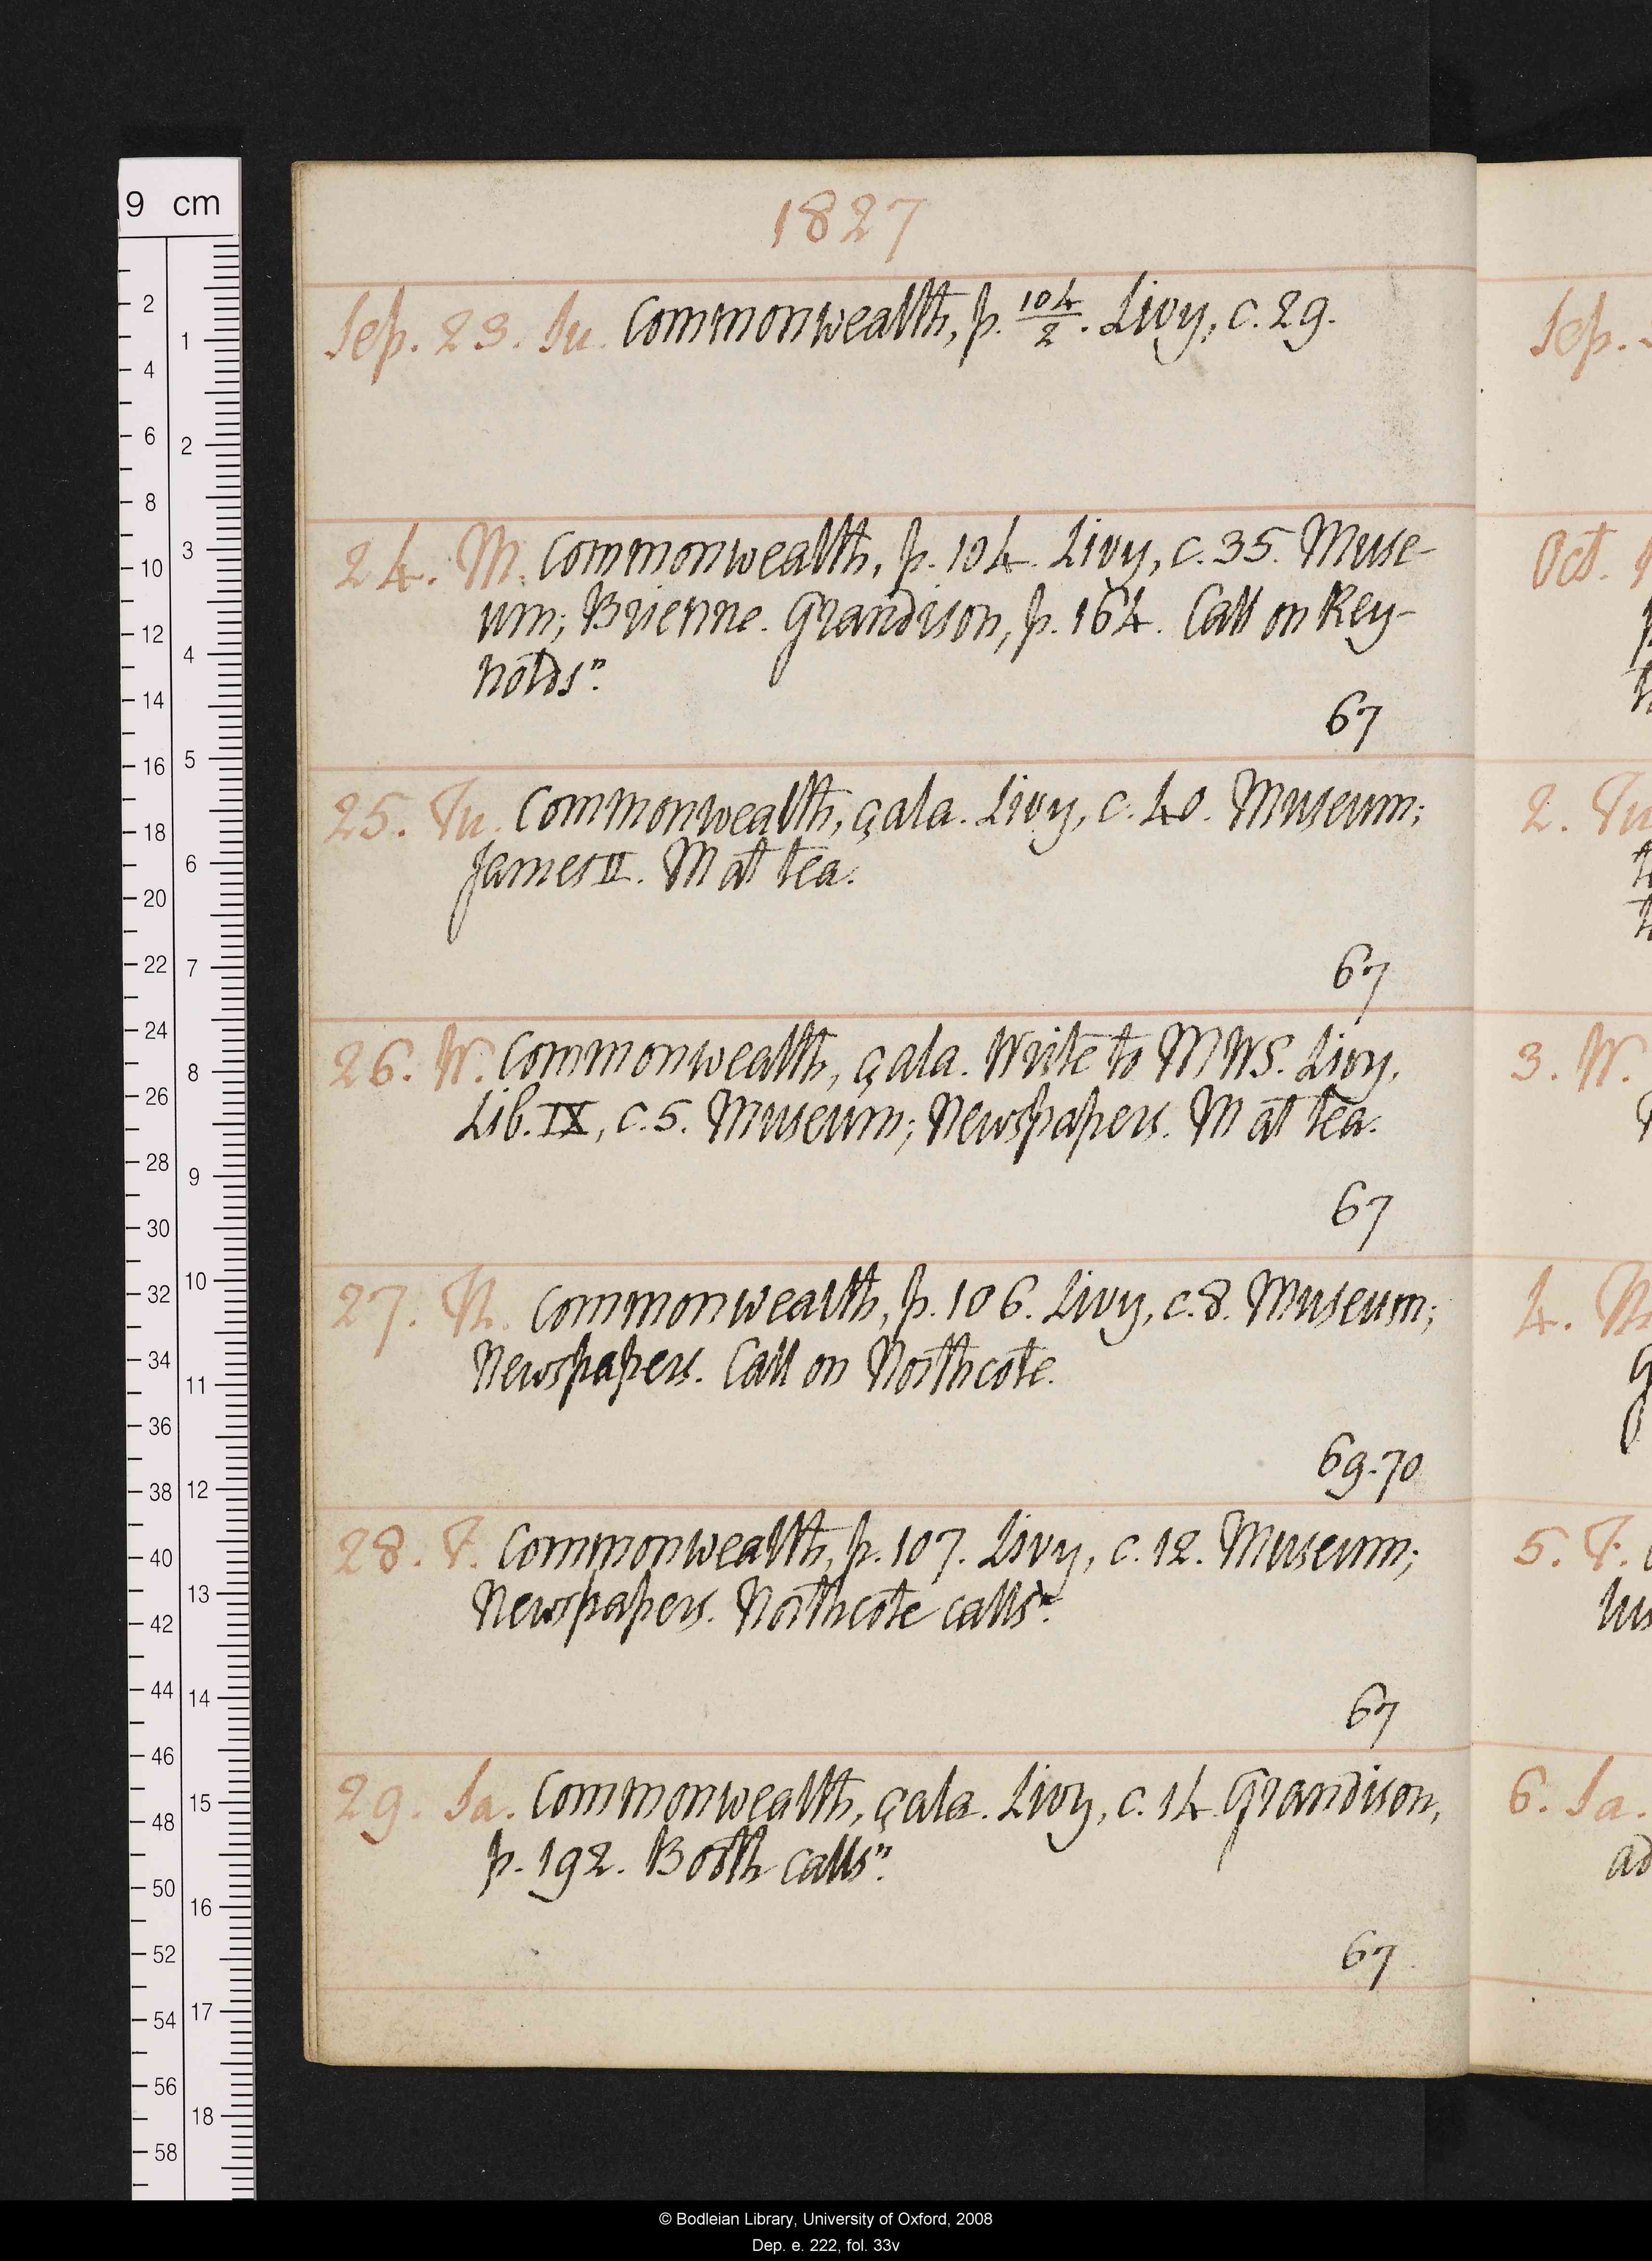 9 cm
1827
Sep. 23. Su. Commonwealth, p. 104/2. Livy, c. 29.
24. M. Commonwealth, p. 104. Livy, c. 35. Muse-
um; Brienne. Grandison, p. 164. Call on Rey-
nolds n.
67
25. Tu. Commonwealth, çala. Livy, c. 40. Museum;
James II. M at tea.
67
26. W. Commonwealth, çala. Write to MWS. Livy,
Lib. IX, c. 5. Museum; Newspapers. M at tea.
67
27. Th. Commonwealth, p. 106. Livy, c. 8. Museum;
Newspapers. Call on Northcote.
69.70
28. F. Commonwealth, p. 107. Livy, c. 12. Museum;
Newspapers. Northcote calls n.
67
29. Sa. Commonwealth, çala. Livy, c. 14. Grandison,
p. 192. Booth calls n.
67
Sep.
Oct.
2. Tu
3. W.
4. Th
5. F.
6. Sa.
© Bodleian Library, University of Oxford, 2008
Dep. e. 222, fol. 33v